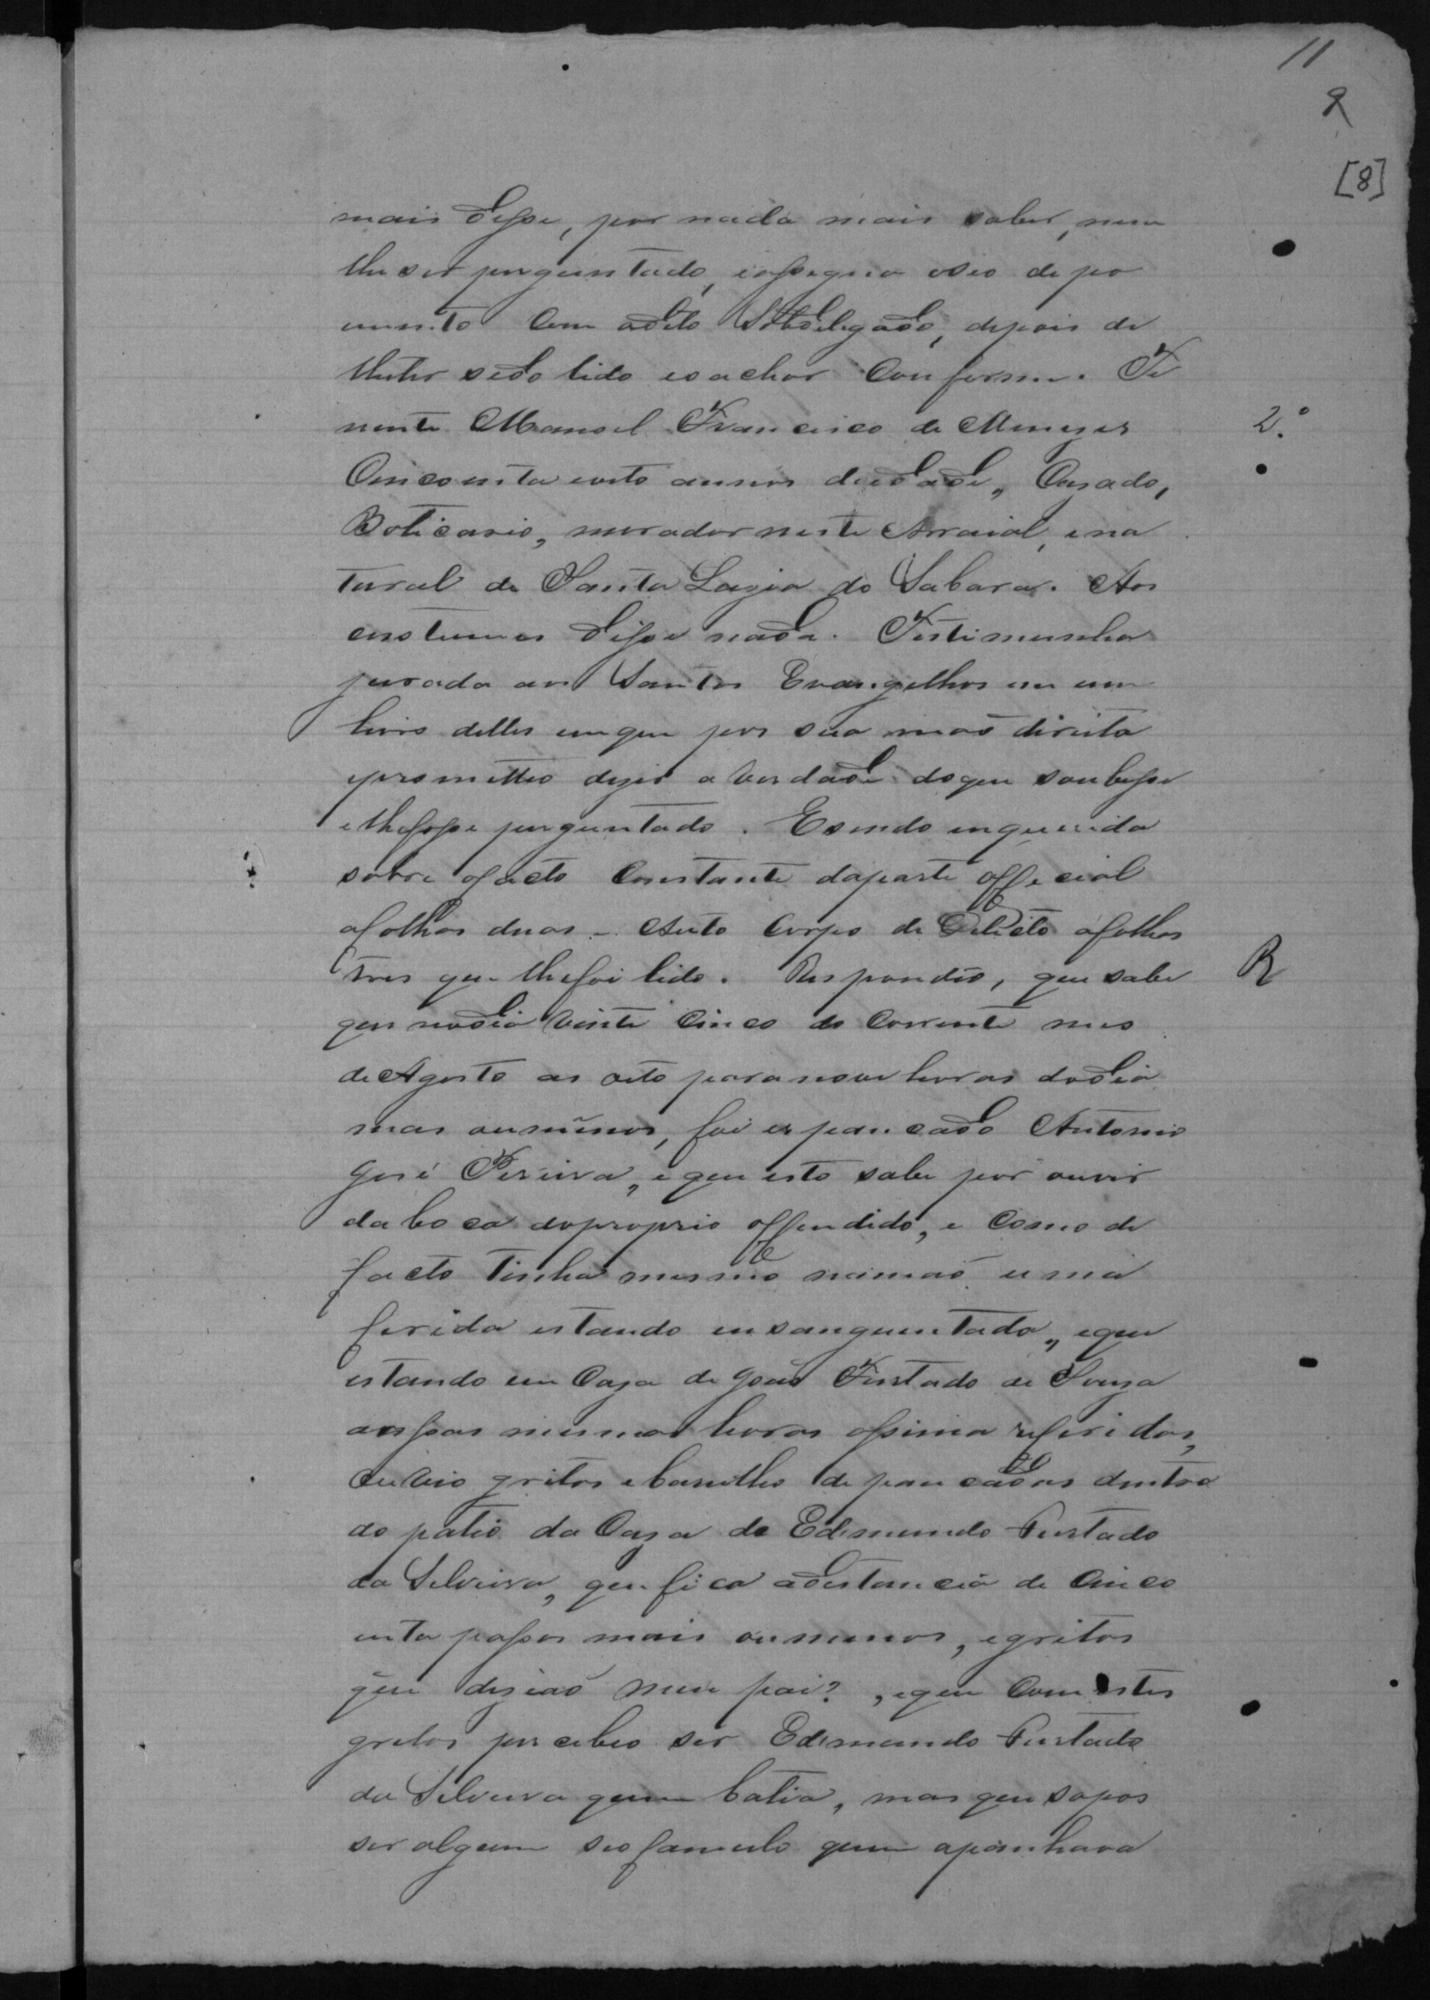 11
9
[8]
mais disse, por nada mais saber, nem
lhe ser perguntado, e assigna o seo depo
imento com o dito Sobdelegado, depois de
lhe ter sedo lido e o achar conforme. Te
nente Manoel Francisco de Menezes
2º
cincoenta e oito annos de edade, Cazado,
Boticario, morador neste Arraial, e na
tural de Santa Luzia do Sabara. Aos
custumes disse nada. Testimunha
jurada aos Santos Evangelhos em um
livro delles em que pos sua maõ direita
e prometteo dizer a verdade do que soubesse
e lhe fosse perguntado. E sendo enquerida
sobre o facto constante da parte official
a folhas duas - Auto Corpo de Delicto a folhas
tres que lhe foi lido. Respondeo, que sabe
R
que no dia vinte cinco do corrente mes
de Agosto as oito para nove horas do dia
mas ou menos, foi espancado Antonio
José Pereira, e que isto sabe por ouvir
da boca do proprio offendido, e como de
facto tinha mesmo na maõ uma
ferida estando ensanguentada, e que
estando em Caza de Joaõ Furtado de Souza
as mesmas horas assima referidas,
ouvio gritos e barulho de pancadas dentro
do patio da Caza de Edmundo Furtado
da Silveira, que fica a destancia de cinco
enta passos mais ou menos, e gritos
que diziaõ meu pai?, e que com estes
gritos percebeo ser Edmundo Furtado
da Silveira quem batia, mas que sopos
ser algum seo famulo quem apanhava